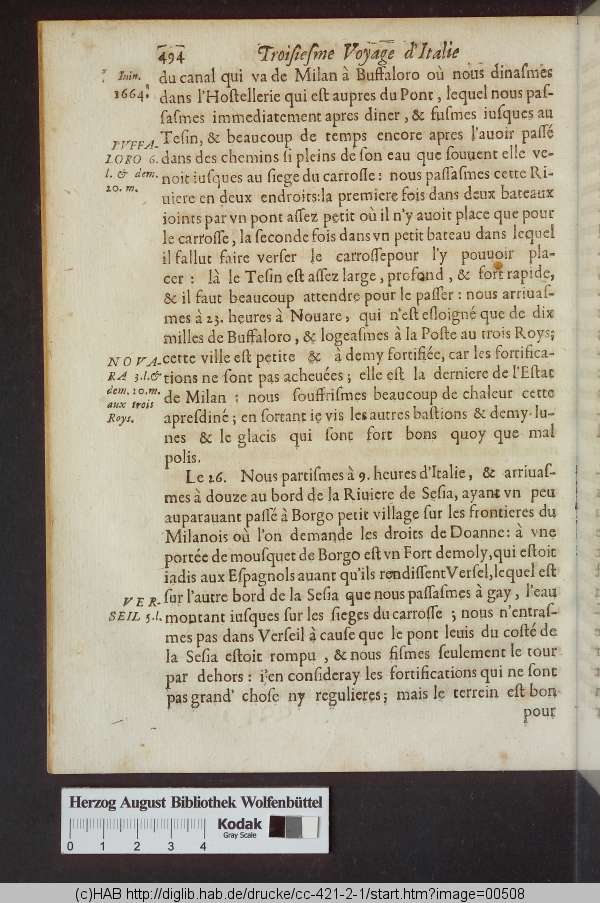 494 Troisiesme Voyage d'Italie
Iuin.
1664.
du canal qui va de Milan à Buffaloro où nous dinasmes
dans l'Hostellerie qui est aupres du Pont, lequel nous pas-
sasmes immediatement apres diner, & fusmes iusques au
Tesin, & beaucoup de temps encore apres l'auoir passé
BVFFA-
LORO 6.
l. & dem.
20. m.
dans des chemins si pleins de son eau que souuent elle ve-
noit iusques au siege du carrosse: nous passasmes cette Ri-
uiere en deux endroits: la premiere fois dans deux bateaux
ioints par vn pont assez petit où il n'y auoit place que pour
le carrosse, la seconde fois dans vn petit bateau dans lequel
il fallut faire verser le carrosse pour l'y pouuoir pla-
cer: là le Tesin est assez large, profond, & fort rapide,
& il faut beaucoup attendre pour le passer: nous arriuas-
mes à 23. heures à Nouare, qui n'est esloigné que de dix
milles de Buffaloro, & logeasmes à la Poste au trois Roys;
NOVA-
RA 3. l. &
dem. 10. m.
aux trois
Roys.
cette ville est petite & à demy fortifiée, car les fortifica-
tions ne sont pas acheuées; elle est la derniere de l'Estat
de Milan: nous souffrismes beaucoup de chaleur cette
apresdiné; en sortant ie vis les autres bastions & demy-lu-
nes & le glacis qui sont fort bons quoy que mal
polis.
Le 26. Nous partismes à 9. heures d'Italie, & arriuas-
mes à douze au bord de la Riuiere de Sesia, ayant vn peu
auparauant passé à Borgo petit village sur les frontieres du
Milanois où l'on demande les droits de Doanne: à vne
portée de mousquet de Borgo est vn Fort demoly, qui estoit
iadis aux Espagnols auant qu'ils rendissent Versel, lequel est
VER-
SEIL 5. l.
sur l'autre bord de la Sesia que nous passasmes à gay, l'eau
montant iusques sur les sieges du carrosse; nous n'entras-
mes pas dans Verseil à cause que le pont leuis du costé de
la Sesia estoit rompu, & nous fismes seulement le tour
par dehors: i'en consideray les fortifications qui ne sont
pas grand' chose ny regulieres; mais le terrein est bon
pour
Herzog August Bibliothek Wolfenbüttel
0 1 2 3 4
Kodak
Gray Scale
(c)HAB http://diglib.hab.de/drucke/cc-421-2-1/start.htm?image=00508